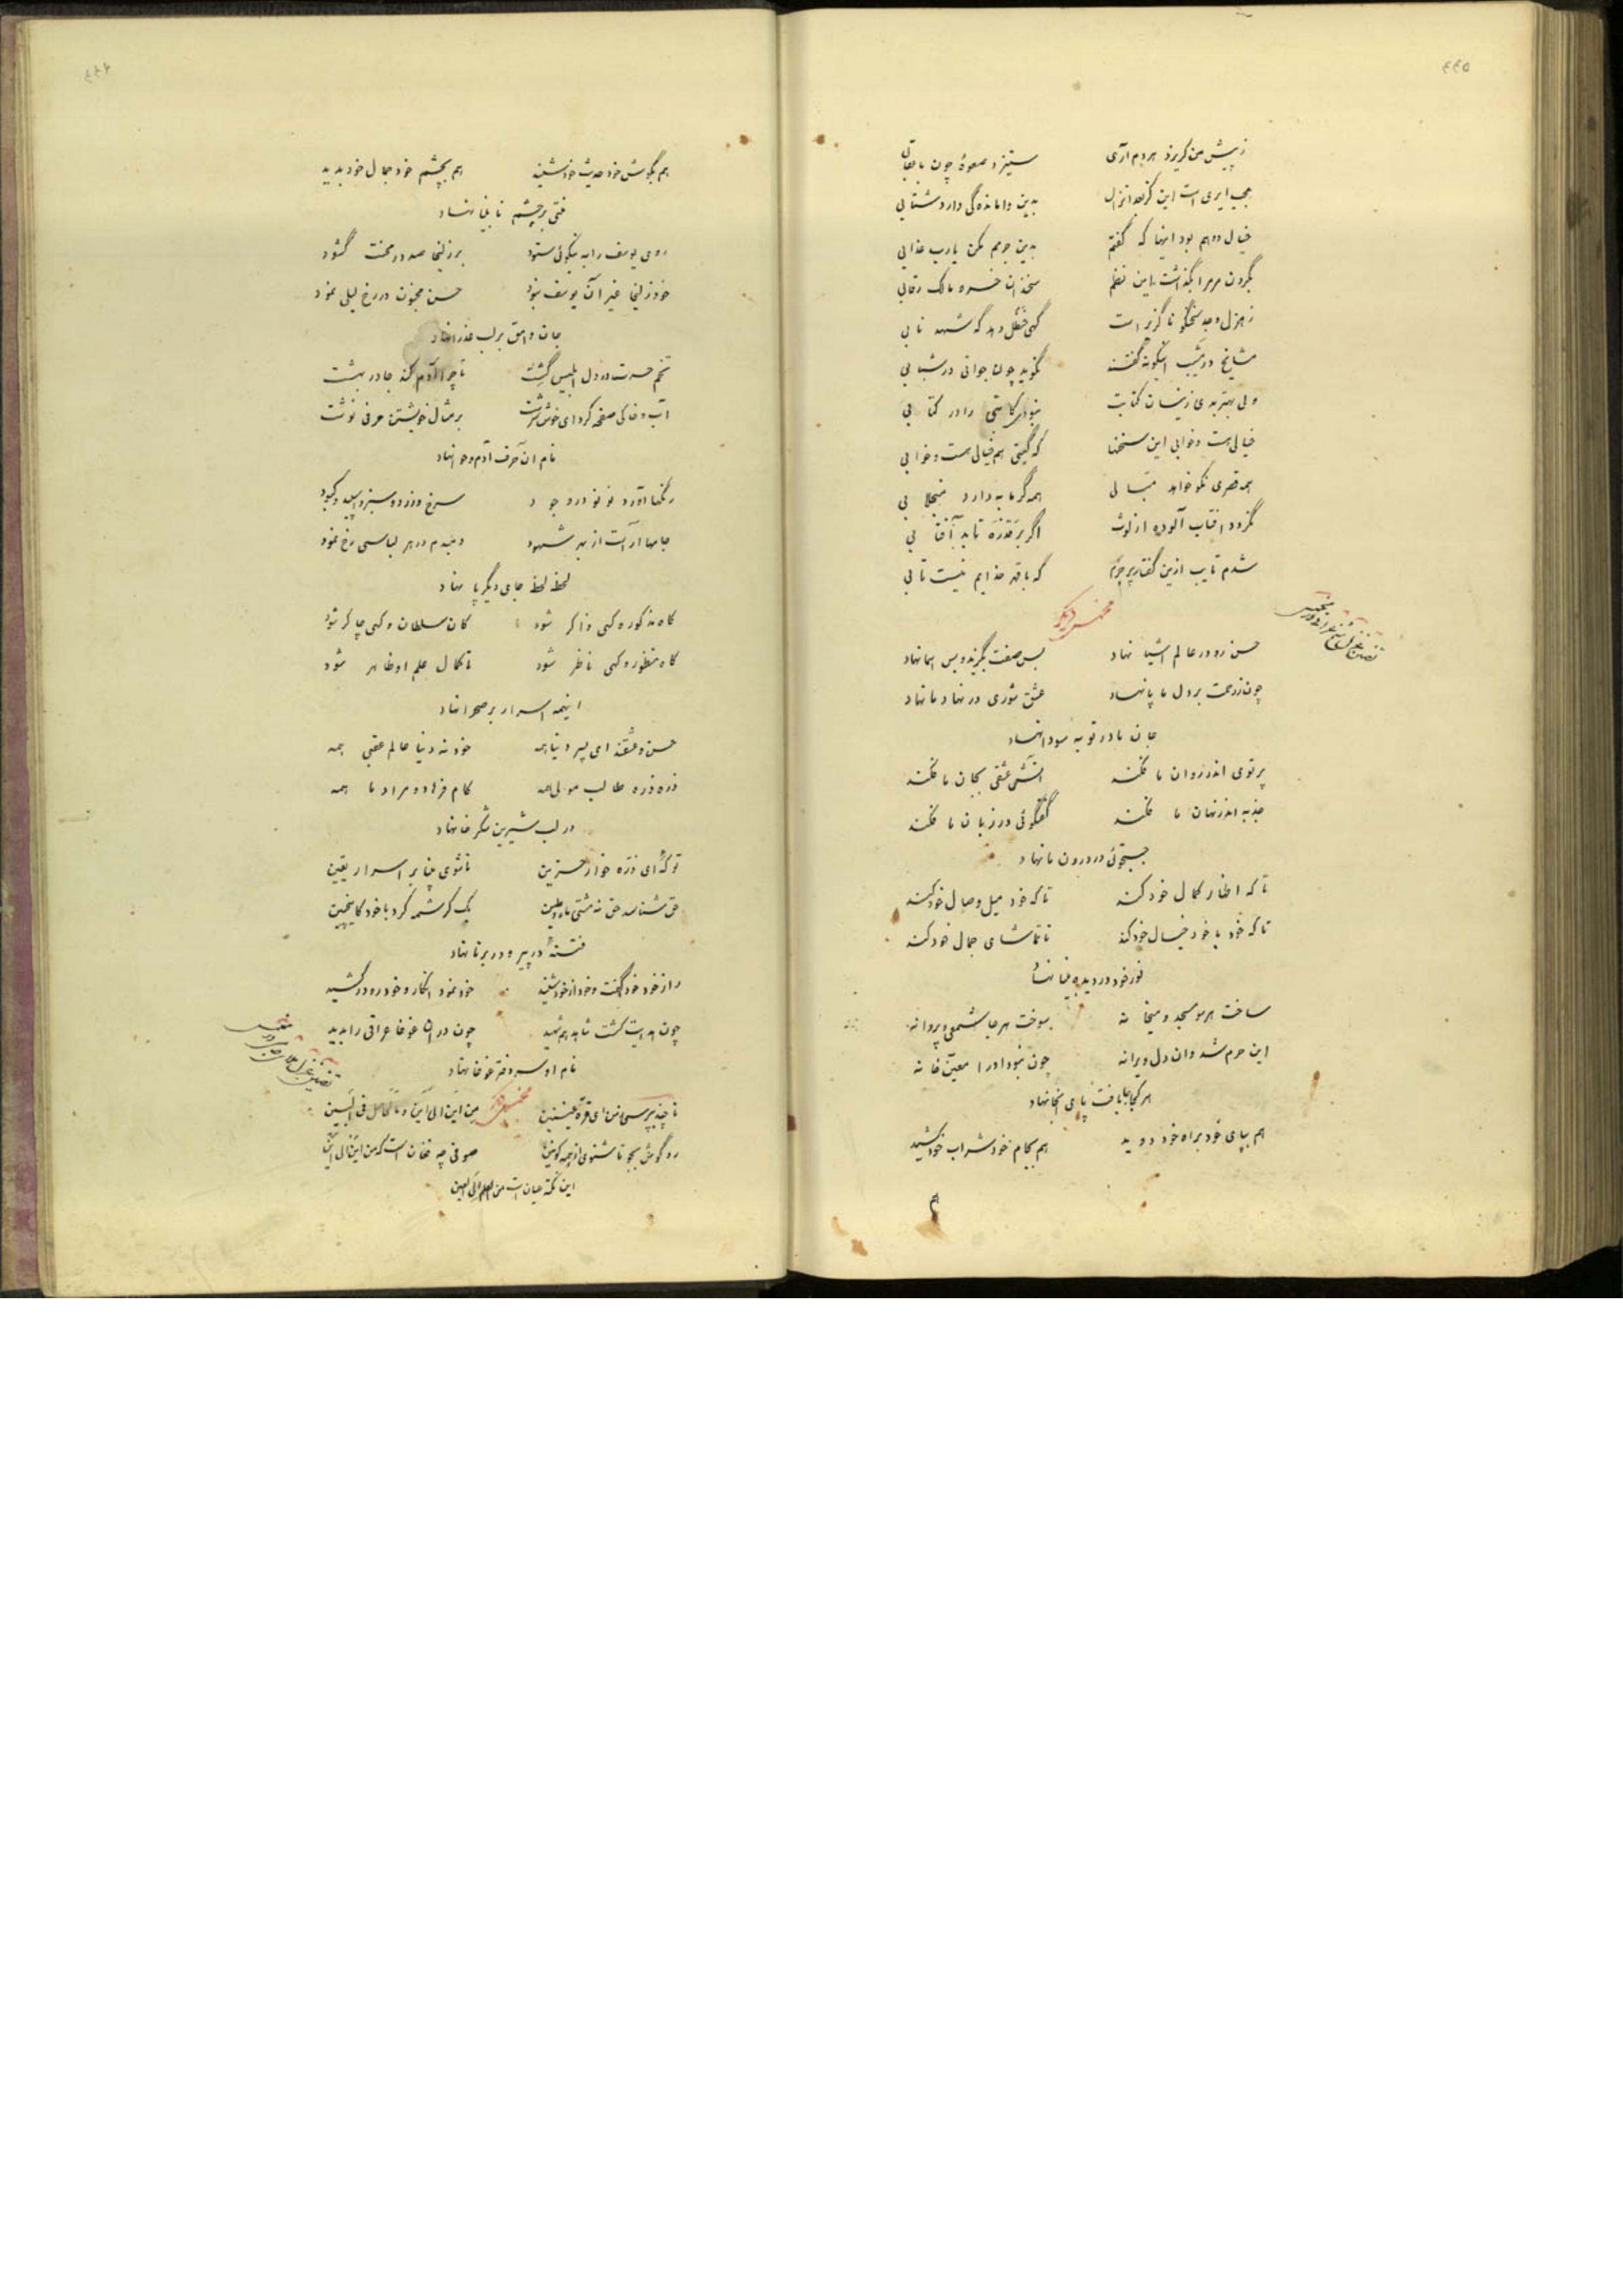 ۴۴۵
ز پیش من کریزد هر دم آری ستیزد صعوهٔ چون با عقابی
عجب ایری است این کز بعد انزال بدین واماندگی دارد شتابی
خیال و وهم بود اینها که گفتم بدین جرمم مکن یارب عذابی
بگردون مر مرا بگذاشت این نظم سخندان خسرو مالک رقابی
ز هزل و جد سخنگو ناگزیر است گهی حنظل دهد گه شهد نابی
مشایخ در شیب اینگونه گفتند نگوید چون جوانی در شبابی
ولی بهتر بدی زینسان کتابت نبودی کاتبی را در کتابی
خیالی هست و خوابی این سخنها که گیتی هم خیالی هست و خوابی
همه قصری نکو خواهد
نگردد افتاب آلوده از لوث اگر بر قذره تابد آفتابی
شدم تایب ازین گفتار پر جرم که با قهر خدایم نیست تابی
مخمس دیگر
حسن رو در عالم اشیا نهاد بس صفت بگزید و بس اسما نهاد
چون ز رحمت بر دل ما پا نهاد عشق شوری در نهاد ما نهاد
جان ما در بوته سودا نهاد
پرتوی اندر روان ما فکند اتش عشقی بجان ما فکند
جذبه اندر نهان ما فکند گفتگوئی در زبان ما فکند
جستجوئی در درون ما نهاد
تا که اظهار کمال خود کند تا که خود میل وصال خود کند
تا که خود با خود خیال خود کند تا تماشای جمال خود کند
نور خود در دیده بینا نهاد
ساخت هر سو مسجد و میخانه سوخت هر جا شمعی و پروانه
این حرم شد وان دل ویرانه چون نبود او را معین خانه
هر کجا جا یافت پای انجا نهاد
هم بپای خود براه خود دوید هم بکام خود شراب خود کشید
هم
۴۴۶
هم بگوش خود حدیث خود شنید هم بچشم خود جمال خود بدید
منتی بر چشم نابینا نهاد
روی یوسف را به نیکوئی ستود بر زلیخا صد در محنت گشود
خود زلیخا غیر آن یوسف نبود حسن مجنون در رخ لیلی نمود
جان وامق بر لب عذرا نهاد
تخم حسرت در دل ابلیس گشت تا چرا آدم کند جا در بهشت
آب و خاکی صفحه کرد ای خوش سرشت بر مثال خویشتن حرفی نوشت
نام ان حرف آدم و حوا نهاد
رنگها آورد نو نو در وجود سرخ و زرد و سبز و اسپید و کبود
جامها آراست از بهر شهود دمبدم در هر لباسی رخ نمود
لحظه لحظه جای دیگر پا نهاد
گاه مذکور و گهی ذاکر شود گاه سلطان و گهی چاکر شود
گاه منظور و گهی ناظر شود تا کمال علم او ظاهر شود
اینهمه اسرار بر صحرا نهاد
حسن و عشقند ای پسر دنیا همه خود نه دنیا عالم عقبی همه
ذره ذره طالب مولی همه کام فرهاد و مراد ما همه
در لب شیرین شکرخا نهاد
تو که‌ای ذره خوار حزین تا شوی بینا بر اسرار یقین
حق شناسد حق نه مشتی ماء و طین یک کرشمه کرد با خود کانچنین
فتنهٔ در پیر و در برنا نهاد
راز خود خود گفت و خود از خود شنید خود نمود انکار و خود رو در کشید
چون هدایت گشت شاهد هم شهید چون در ان غوغا عراقی را بدید
نام او سر دفتر غوغا نهاد
مخمس دیگر
تا چند بپرسی من ای قرة عینین من این الی این و ما الحاصل فی البین
رو گوش بجو تا شنوی از همه کونین صوفی چه فغان است که من این الی این
این نکته عیان است من العلم الی العین